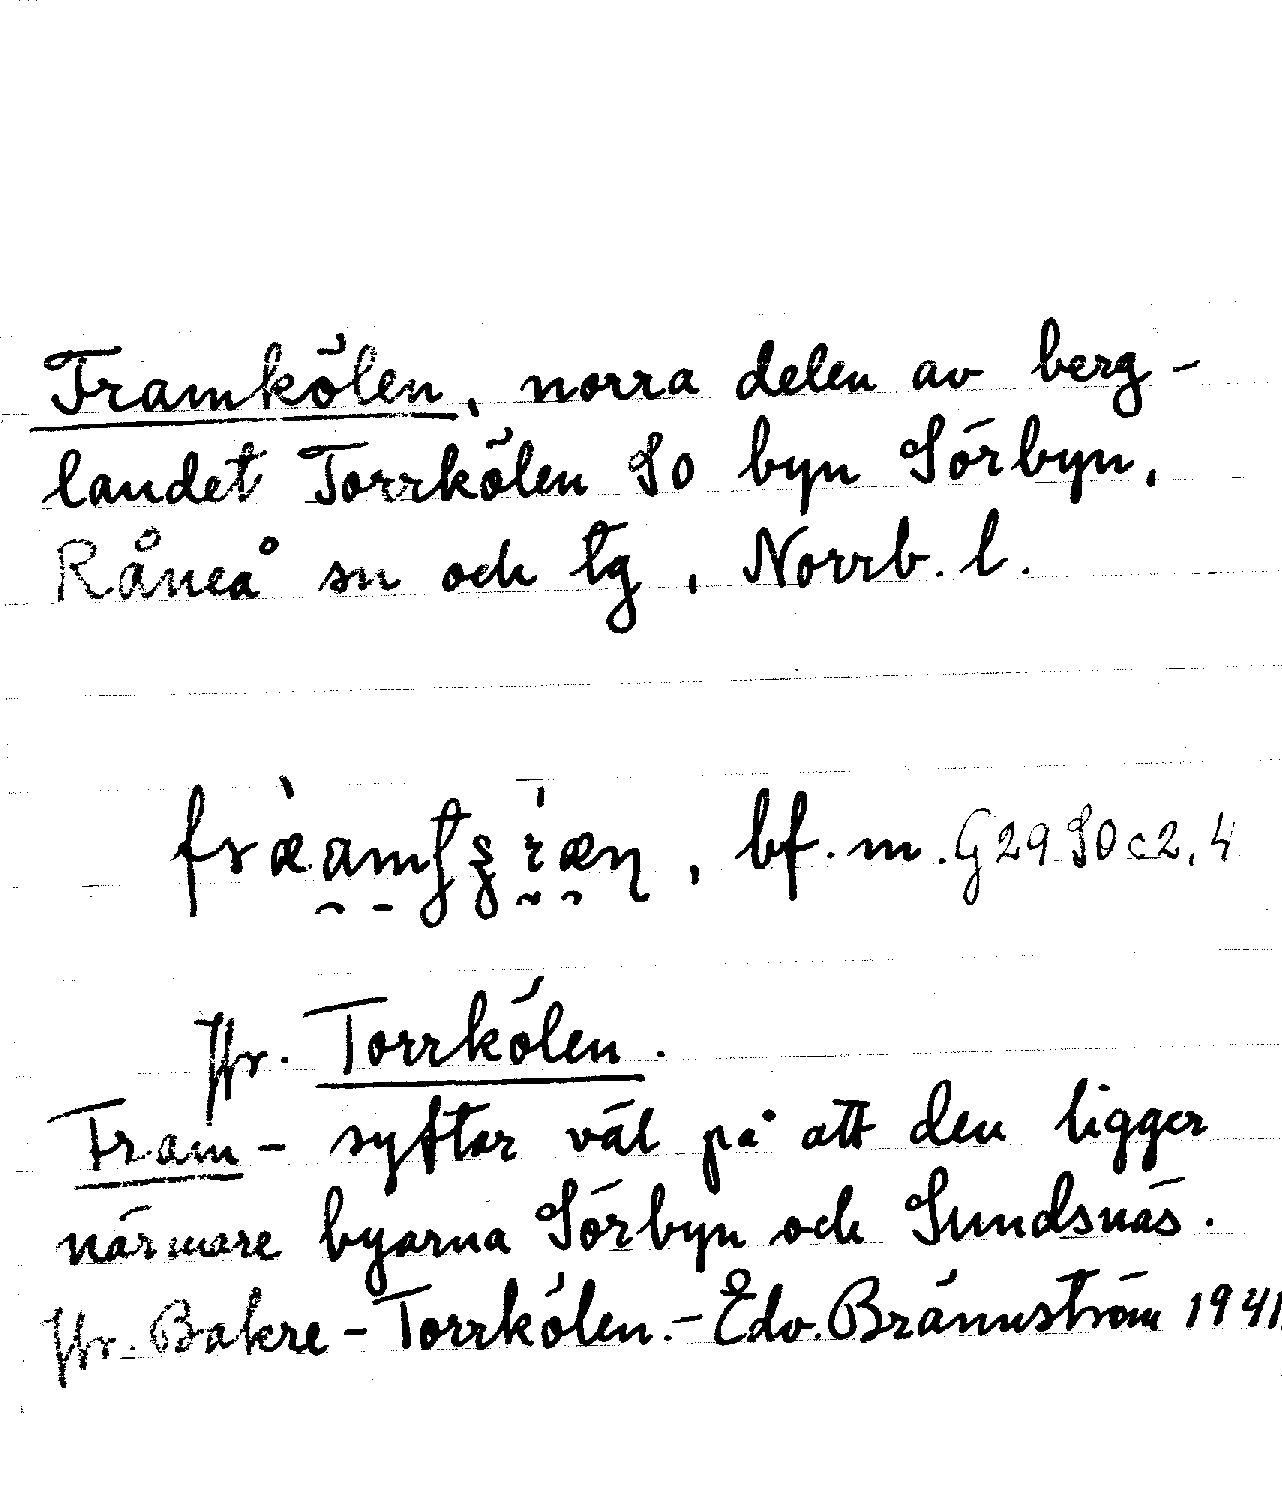 Framkölen, norra delen av berg-
landet Torrkölen SO byn Sörbyn,
Råneå sn och tg, Norrb. l.
bf. m. G29 SO c2, 4
Jfr. Torrkölen.
Fram- syftar väl på att den ligger
närmare byarna Sörbyn och Sundsnäs.
Jfr. Bakre-Torrkölen.- Edv. Brännström 1941